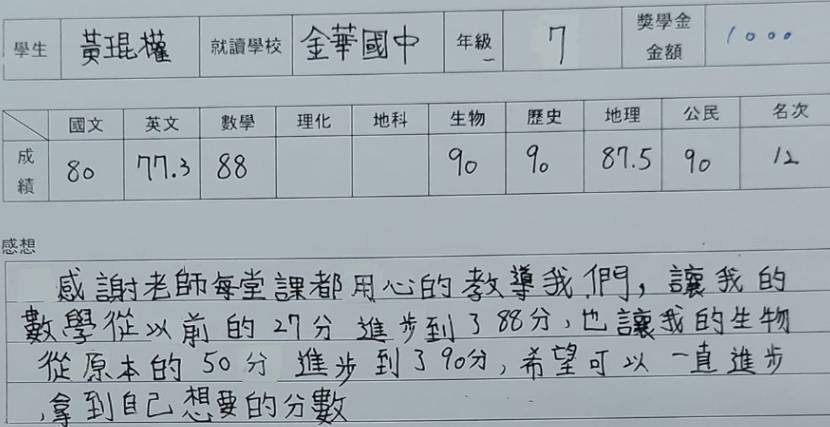 學生 黃琨權 就讀學校 金華國中 年級 7 獎學金金額 1000
國文 英文 數學 理化 地科 生物 歷史 地理 公民 名次
成績 80 77.3 88 90 90 87.5 90 12
感想
感謝老師每堂課都用心的教導我們,讓我的
數學從以前的27分進步到了88分,也讓我的生物
從原本的50分進步到了90分,希望可以一直進步
,拿到自己想要的分數